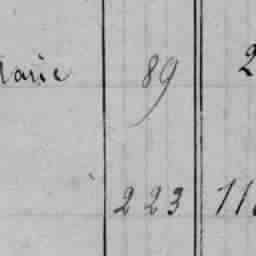 89 2
223 11